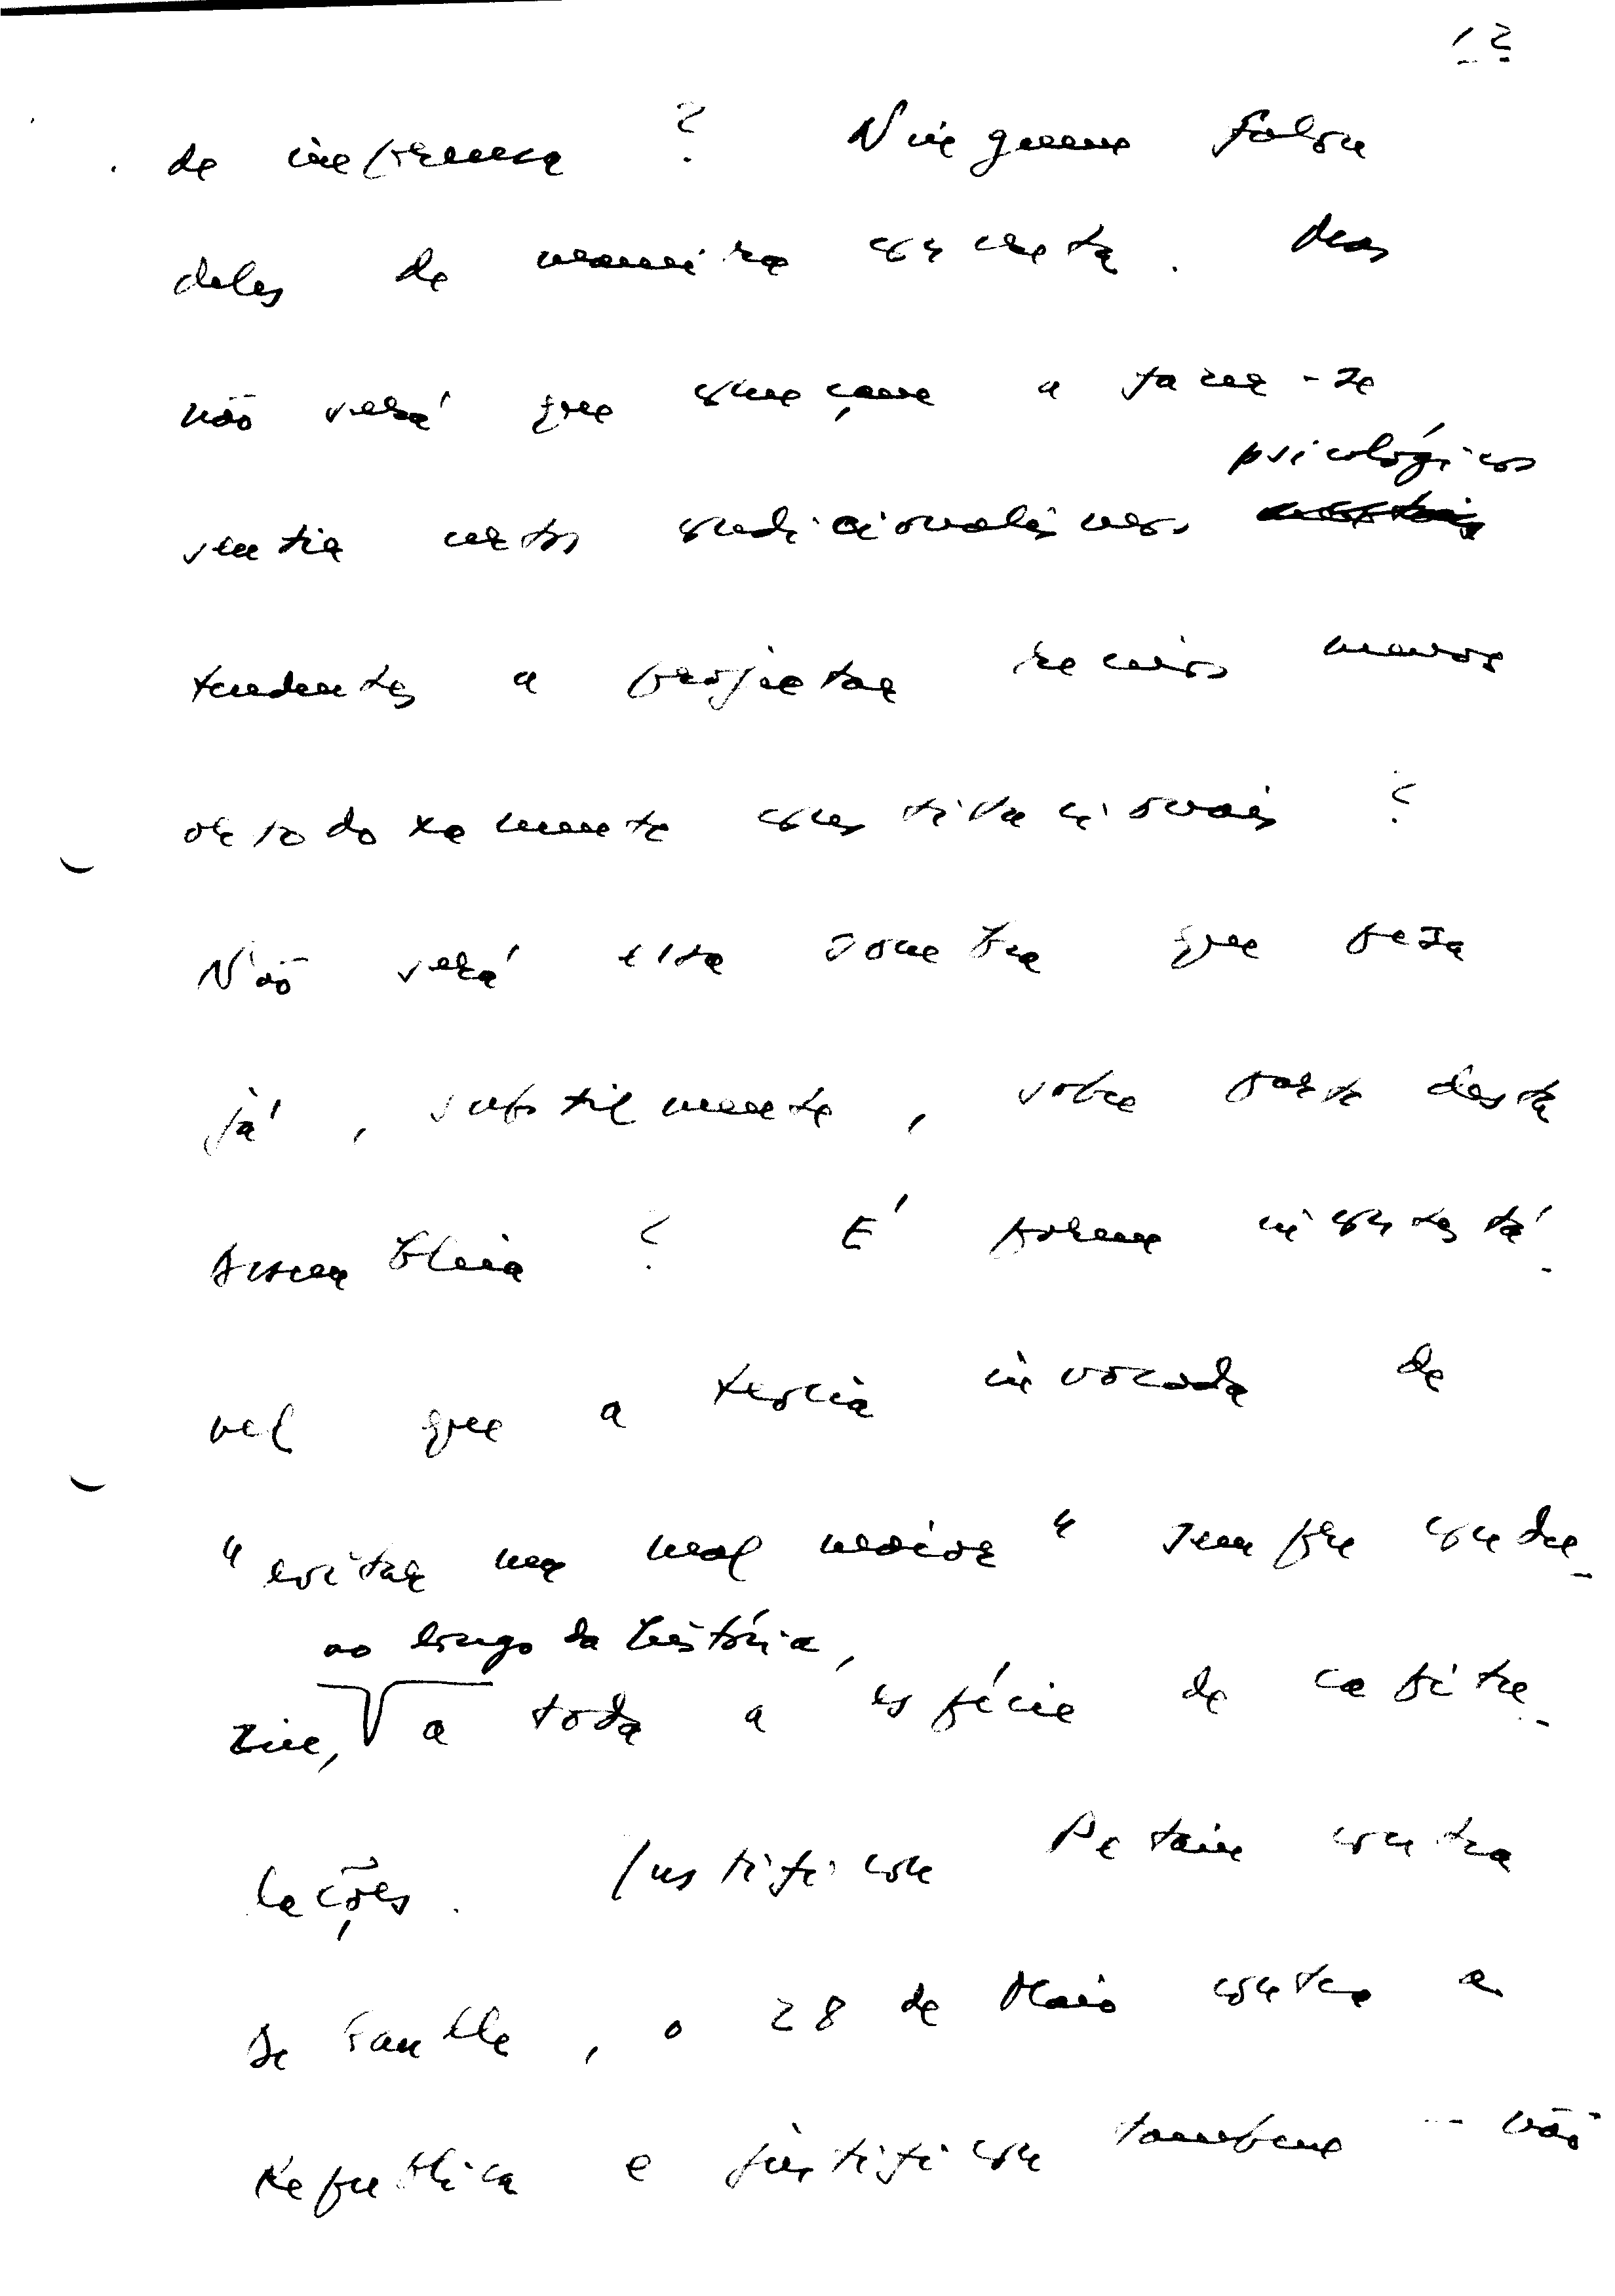 12
de informa? Ninguem falou
deles de maneira concreta. Mas
não será que começam a fazer-se
psicológicos
sentir certos condicionalismos
tendentes a projectar receios menos
ortodoxamente constitucionais?
Não será esta sombra que pesa
já, subtilmente, sobre parte desta
Assembleia? É porem incontestá-
vel que a teoria invocada de
"evitar um mal maior" sempre condu-
ao longo da história,
ziu, a toda a espécie de capitu-
lações. Justificou Petain contra
De Gaulle, o 28 de Maio contra a
Republica e justificou tambem - não